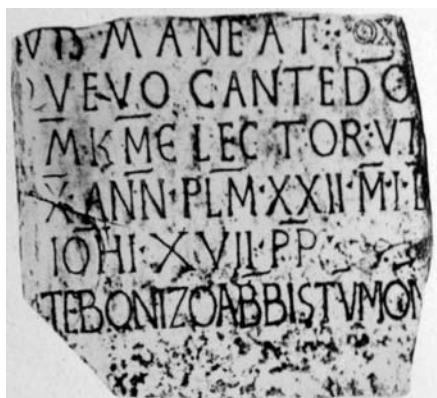 MANEAT
VEVO CANTE DO
LECTOR·VT
X·ANN·PLM·XXII·MI
IOHI·XVII·PP
TE BONIZO ABB ISTV MON